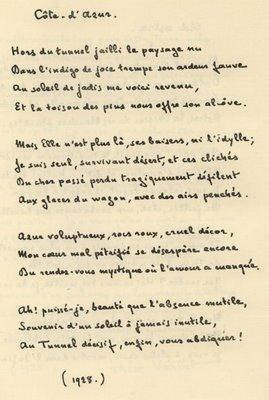 Côte-d'Azur.
Hors du tunnel jailli le paysage nu
Dans l'indigo de joie trempe son ardeur fauve
Au soleil de jadis me voici revenu,
Et la toison des pins nous offre son alcôve.
Mais Elle n'est plus là, ses baisers, ni l'idylle ;
Je suis seul, survivant désert, et ces clichés
Du cher passé perdu tragiquement défilent
Aux glaces du wagon, avec des airs penchés.
Azur voluptueux, rocs roux, cruel décor,
Mon cœur mal pétrifié se désespère encore
Du rendez-vous mystique où l'amour a manqué.
Ah! puissé-je, beauté que l'absence mutile,
Souvenir d'un soleil à jamais inutile,
Au Tunnel décisif, enfin, vous abdiquer !
(1928.)